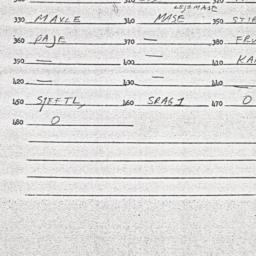 LEJEMASE
330 MAVLE 340 MASE 350 STIF
360 PAJE 370 — 380 FRU
390 — 400 — 410 KA
420 — 430 — 440 —
450 SJEFTL, 460 SRAGI 470 O
480 O